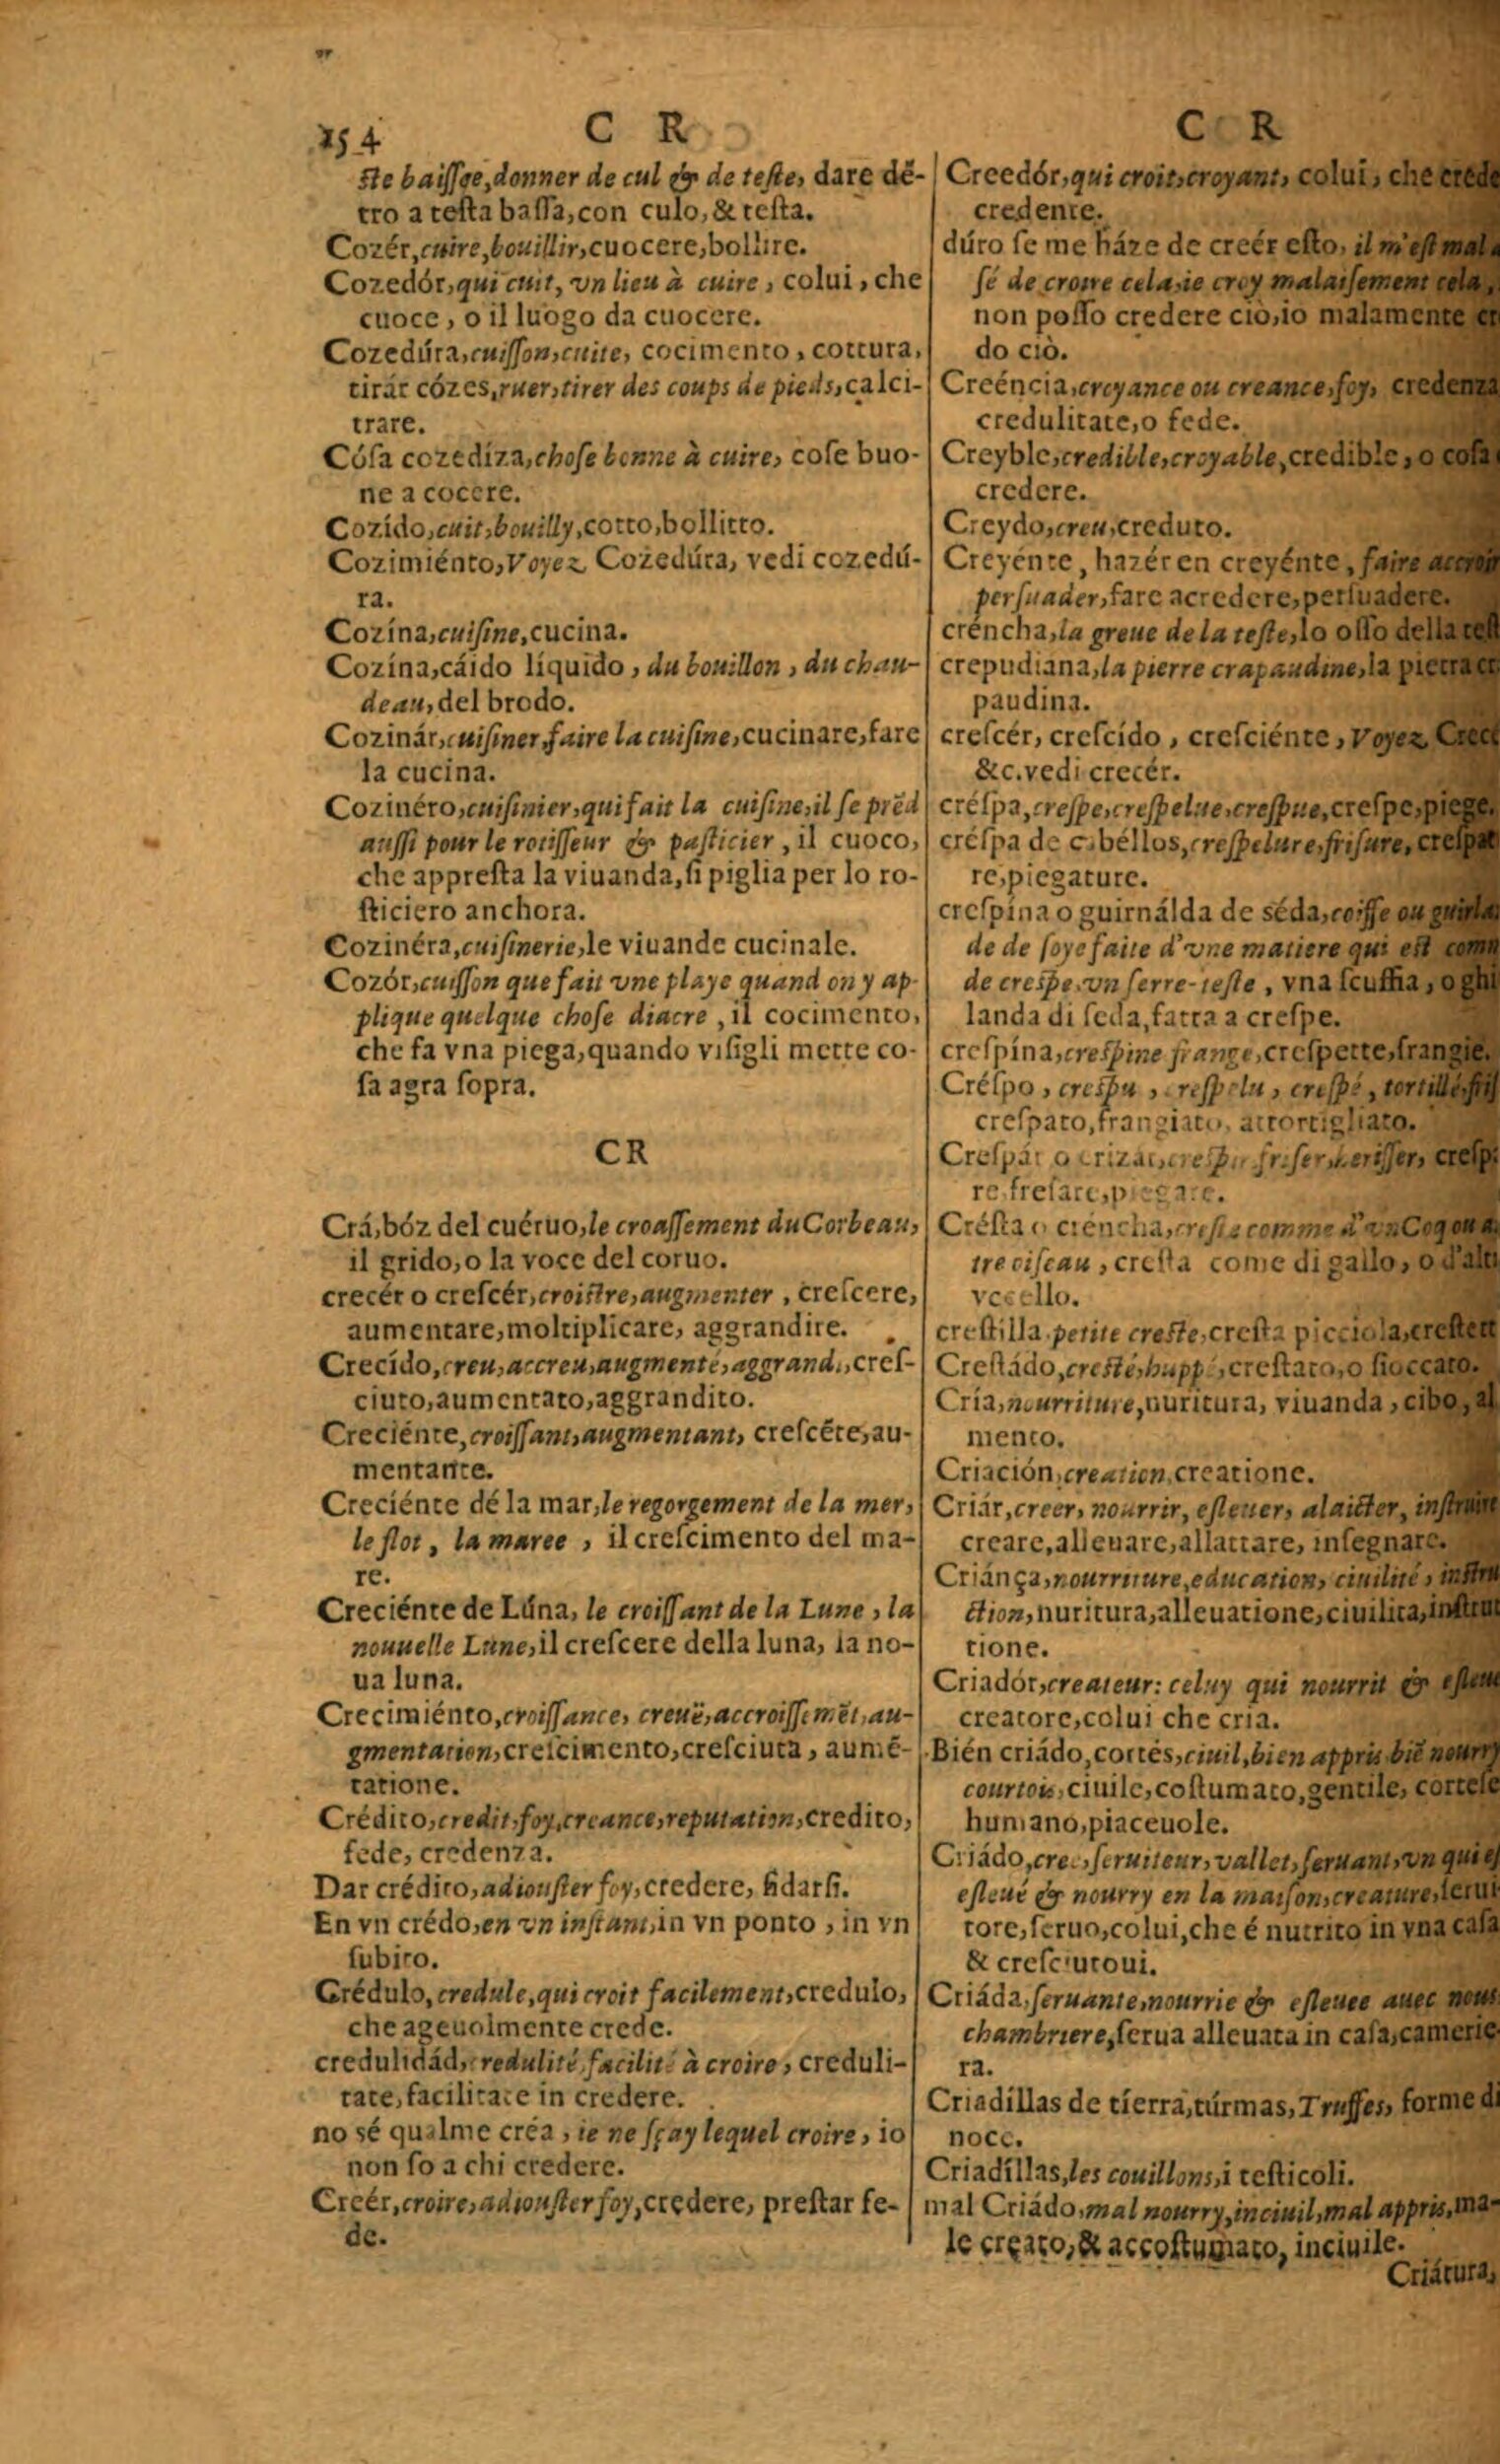 254
C R
ste baissee, donner de cul & de teste, dare dē-
tro a testa bassa, con culo, & testa.
Cozér, cuire, bouillir, cuocere, bollire.
Cozedór, qui cuit, vn lieu à cuire, colui, che
cuoce, o il luogo da cuocere.
Cozedúra, cuisson, cuite, cocimento, cottura,
tirár cózes, ruer, tirer des coups de pieds, calci-
trare.
Cósa cozedíza, chose bonne à cuire, cose buo-
ne a cocere.
Cozído, cuit, bouilly, cotto, bollitto.
Cozimiénto, Voyez Cozedúra, vedi cozedú-
ra.
Cozína, cuisine, cucina.
Cozína, cáido líquido, du bouillon, du chau-
deau, del brodo.
Cozinár, cuisiner, faire la cuisine, cucinare, fare
la cucina.
Cozinéro, cuisinier, qui fait la cuisine, il se prēd
aussi pour le rotisseur & pasticier, il cuoco,
che appresta la viuanda, si piglia per lo ro-
sticiero anchora.
Cozinéra, cuisinerie, le viuande cucinale.
Cozór, cuisson que fait vne playe quand on y ap-
plique quelque chose diacre, il cocimento,
che fa vna piega, quando visigli mette co-
sa agra sopra.
CR
Crá, bóz del cuéruo, le croassement du Corbeau,
il grido, o la voce del coruo.
crecér o crescér, croistre, augmenter, crescere,
aumentare, moltiplicare, aggrandire.
Crecído, creu, accreu, augmenté, aggrandi, cres-
ciuto, aumentato, aggrandito.
Creciénte, croissant, augmentant, crescēte, au-
mentante.
Creciénte dé la mar, le regorgement de la mer,
le flot, la maree, il crescimento del ma-
re.
Creciénte de Lúna, le croissant de la Lune, la
nouuelle Lune, il crescere della luna, la no-
ua luna.
Crecimiénto, croissance, creuë, accroissemēt, au-
gmentation, crescimento, cresciuta, aumē-
tatione.
Crédito, credit, foy, creance, reputation, credito,
fede, credenza.
Dar crédito, adiouster foy, credere, fidarsi.
En vn crédo, en vn instant, in vn ponto, in vn
subito.
Crédulo, credule, qui croit facilement, credulo,
che ageuolmente crede.
credulidád, credulité, facilité à croire, creduli-
tate, facilitate in credere.
no sé qualme créa, ie ne sçay lequel croire, io
non so a chi credere.
Creér, croire, adiouster foy, credere, prestar fe-
de.
C R
Creedór, qui croit, croyant, colui, che crede
credente.
dúro se me háze de creér esto, il m'est mal a
sé de croire cela, ie croy malaisement cela,
non posso credere ciò, io malamente cr
do ciò.
Creéncia, croyance ou creance, foy, credenza
credulitate, o fede.
Creyble, credible, croyable, credible, o cosa
credere.
Creydo, creu, creduto.
Creyénte, hazér en creyénte, faire accroir
persuader, fare acredere, persuadere.
créncha, la greue de la teste, lo osso della test
crepudiana, la pierre crapaudine, la pietra cr
paudina.
crescér, crescído, cresciénte, Voyez Crecé
&c. vedi crecér.
créspa, crespe, crespelue, crespue, crespe, piege.
créspa de cabéllos, crespelure, frisure, crespat
re, piegature.
crespína o guirnálda de séda, coiffe ou guirlan
de de soye faite d'vne matiere qui est comm
de crespe, vn serre-teste, vna scuffia, o ghi
landa di seda, fatta a crespe.
crespína, crespine frange, crespette, frangie.
Créspo, crespu, crespelu, crespé, tortillé, fris
crespato, frangiato, attortigliato.
Crespár o crizar, crespir, friser, herisser, cresp
re, fresare, piegare.
Crésta o créncha, creste comme d'vn Coq ou a
tre oiseau, cresta come di gallo, o d'altr
vccello.
crestilla, petite creste, cresta picciola, crestett
Crestádo, cresté, huppé, crestato, o fioccato.
Cría, nourriture, nuritura, viuanda, cibo, al
mento.
Criación, creation, creatione.
Criár, creer, nourrir, esleuer, alaicter, instruire
creare, alleuare, allattare, insegnare.
Criánça, nourriture, education, ciuilité, instru
ction, nuritura, alleuatione, ciuilita, instrut
tione.
Criadór, createur: celuy qui nourrit & esleue
creatore, colui che cria.
Bién criádo, cortés, ciuil, bien appris, biē nourry
courtois, ciuile, costumato, gentile, cortese
humano, piaceuole.
Criádo, creé, seruiteur, vallet, seruant, vn qui es
esleué & nourry en la maison, creature, serui-
tore, seruo, colui, che é nutrito in vna casa
& cresciutoui.
Criáda, seruante, nourrie & esleuee auec nous
chambriere, serua alleuata in casa, camerie-
ra.
Criadíllas de tíerra, túrmas, Truffes, forme di
noce.
Criadíllas, les couillons, i testicoli.
mal Criádo, mal nourry, inciuil, mal appris, ma-
le creato, & accostumato, inciuile.
Criátura,